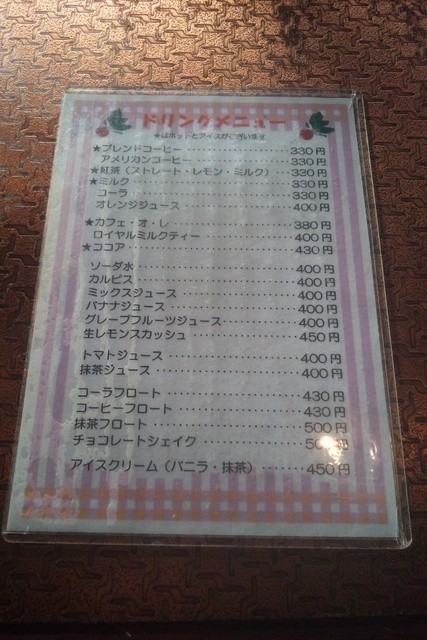 ドリンクメニュー
★はホットとアイスがございます
★ブレンドコーヒー 330円
アメリカンコーヒー 330円
★紅茶（ストレート・レモン・ミルク） 330円
★ミルク 330円
コーラ 330円
オレンジジュース 400円
★カフェ・オ・レ 380円
ロイヤルミルクティー 400円
★ココア 430円
ソーダ水 400円
カルピス 400円
ミックスジュース 400円
バナナジュース 400円
グレープフルーツジュース 400円
生レモンスカッシュ 450円
トマトジュース 400円
抹茶ジュース 400円
コーラフロート 430円
コーヒーフロート 430円
抹茶フロート 500円
チョコレートシェイク 円
アイスクリーム（バニラ・抹茶） 450円